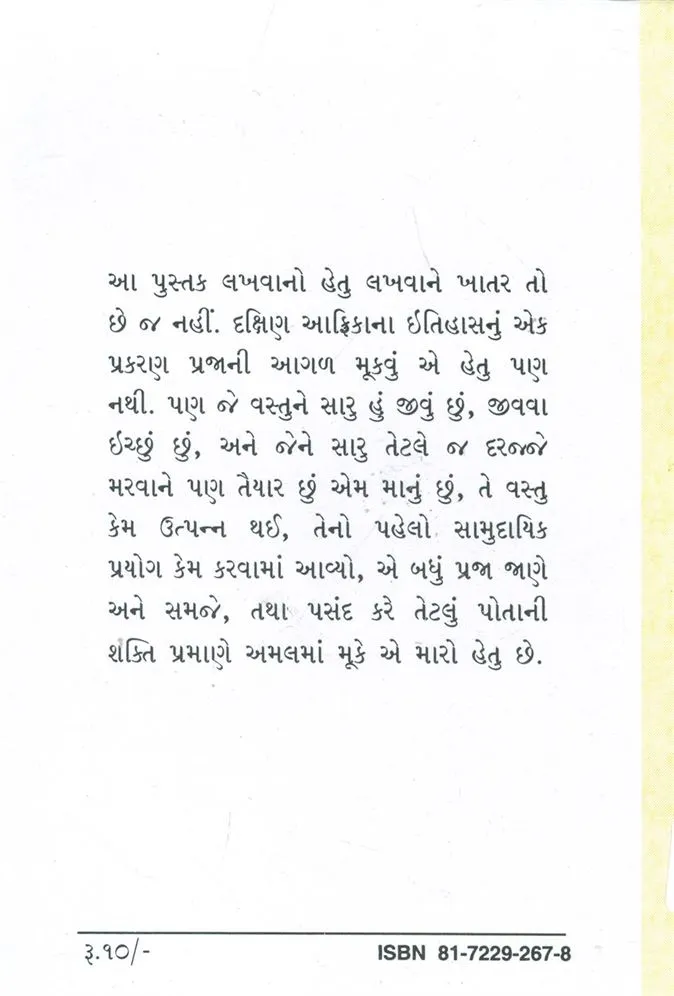 આ પુસ્તક લખવાનો હેતુ લખવાને ખાતર તો
છે જ નહીં. દક્ષિણ આફ્રિકાના ઇતિહાસનું એક
પ્રકરણ પ્રજાની આગળ મૂકવું એ હેતુ પણ
નથી. પણ જે વસ્તુને સારુ હું જીવું છું, જીવવા
ઇચ્છું છું, અને જેને સારુ તેટલે જ દરજ્જે
મરવાને પણ તૈયાર છું એમ માનું છું, તે વસ્તુ
કેમ ઉત્પન્ન થઈ, તેનો પહેલો સામુદાયિક
પ્રયોગ કેમ કરવામાં આવ્યો, એ બધું પ્રજા જાણે
અને સમજે, તથા પસંદ કરે તેટલું પોતાની
શક્તિ પ્રમાણે અમલમાં મૂકે એ મારો હેતુ છે.
રૂ.૧૦/- ISBN 81-7229-267-8